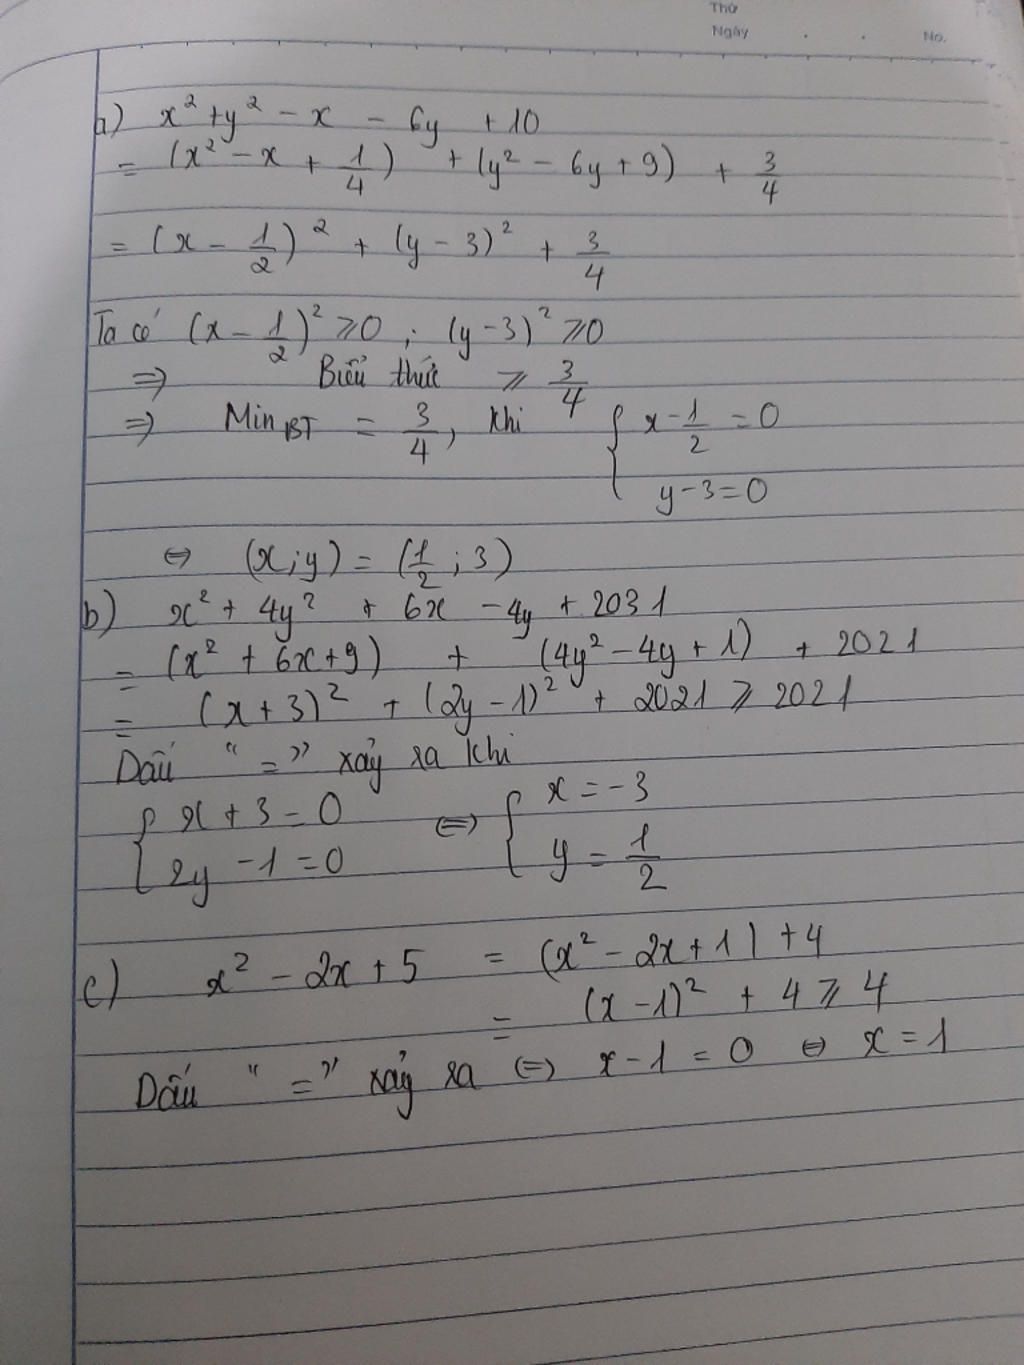 Thứ
Ngày . . No.
a) x² + y² - x - 6y + 10
= (x² - x + 1/4) + (y² - 6y + 9) + 3/4
= (x - 1/2)² + (y - 3)² + 3/4
Ta có (x - 1/2)² ⩾ 0 ; (y - 3)² ⩾ 0
⇒ Biểu thức ⩾ 3/4
⇒ Min BT = 3/4, khi { x - 1/2 = 0
y - 3 = 0
⇔ (x; y) = (1/2 ; 3)
b) x² + 4y² + 6x - 4y + 2031
= (x² + 6x + 9) + (4y² - 4y + 1) + 2021
= (x + 3)² + (2y - 1)² + 2021 ⩾ 2021
Dấu "=" xảy ra khi
{ x + 3 = 0 ⇔ { x = -3
2y - 1 = 0 y = 1/2
c) x² - 2x + 5 = (x² - 2x + 1) + 4
= (x - 1)² + 4 ⩾ 4
Dấu "=" xảy ra ⇔ x - 1 = 0 ⇔ x = 1